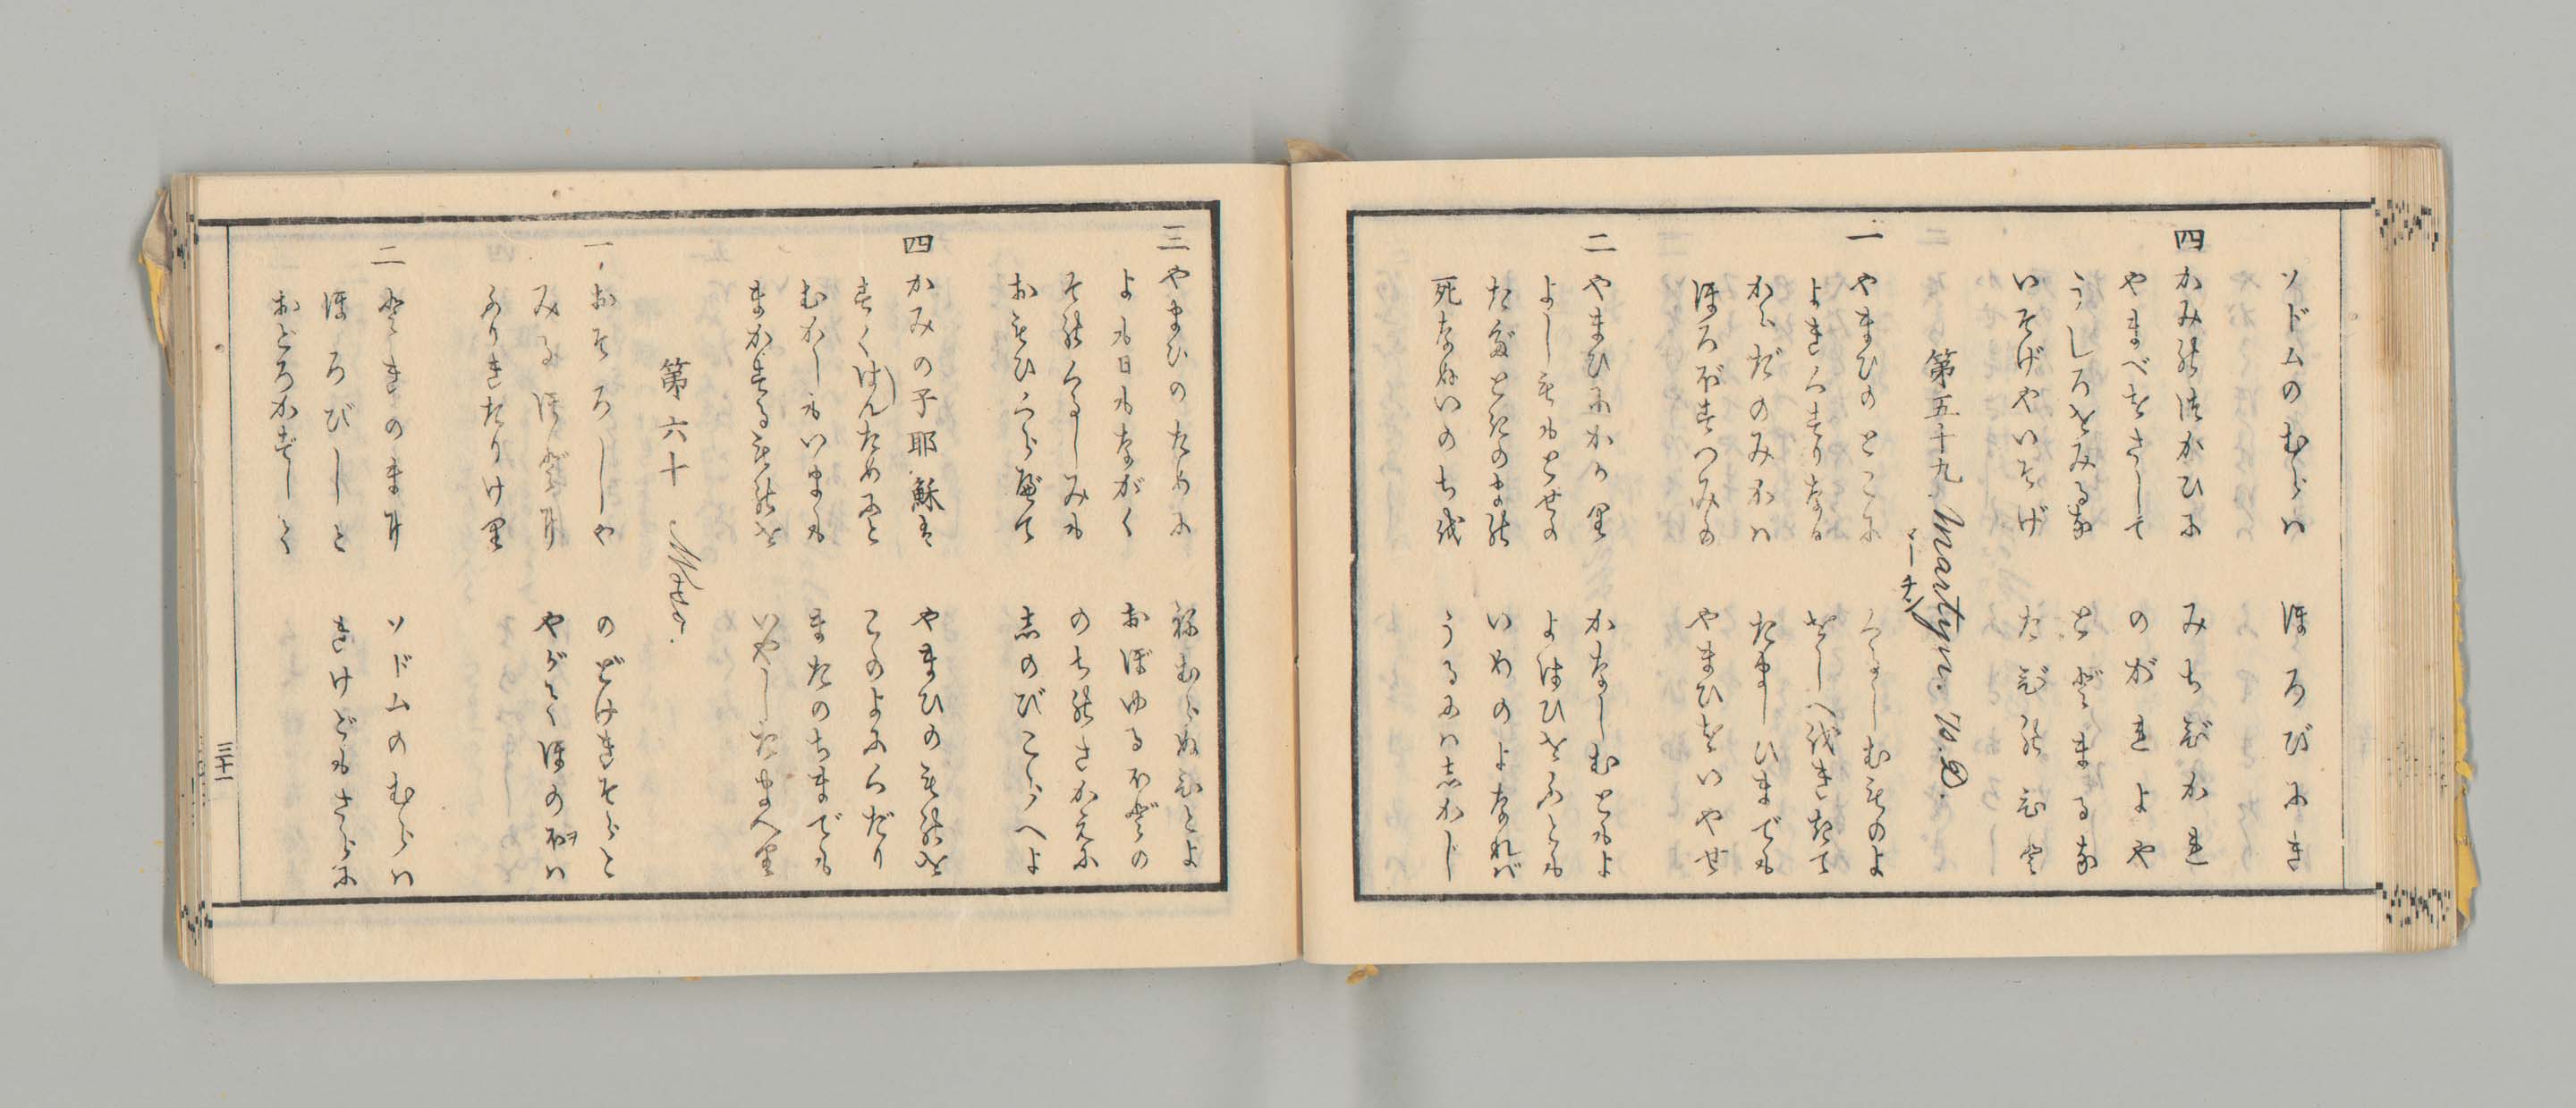 ソドムのむらハ　ほろびにき
四 かみのつかひに　みちびかれ
やまべをさして　のがれよや
うしろをみるな　とゞまるな
いそげやいそげ　たびのひと
第五十九 Martyn. 7.D.
マーチン
一 やまひのとこに　くるしむものよ
よきくすりなる　をしへをきたて
からだのみかハ　たましひまでも
ほろぼすつみの　やまひをいやせ
二 やまひにかゝり　かなしむともよ
よしもゝとせの　よはひをふとも
たゞときのまの　いめのよなれバ
死なぬいのちを　うるにハしかじ
三 やまひのために　ねむらぬひとよ
よも日もながく　おぼゆるほどの
そのくるしみも　のちのさかえに
おもひくらべて　しのびこらへよ
四 かみの子耶穌は　やまひのものを
すくはんために　このよにくだり
むかしもいまも　またのちまでも
まかするものを　いやしたまへり
第六十
一 おそろしや　のどけきそらと
みるほどに　やがてほのほハ
ふりきたりけり
二 ときのまに　ソドムのむらハ
ほろびしと　きけどもさらに
おどろかずして
三十一